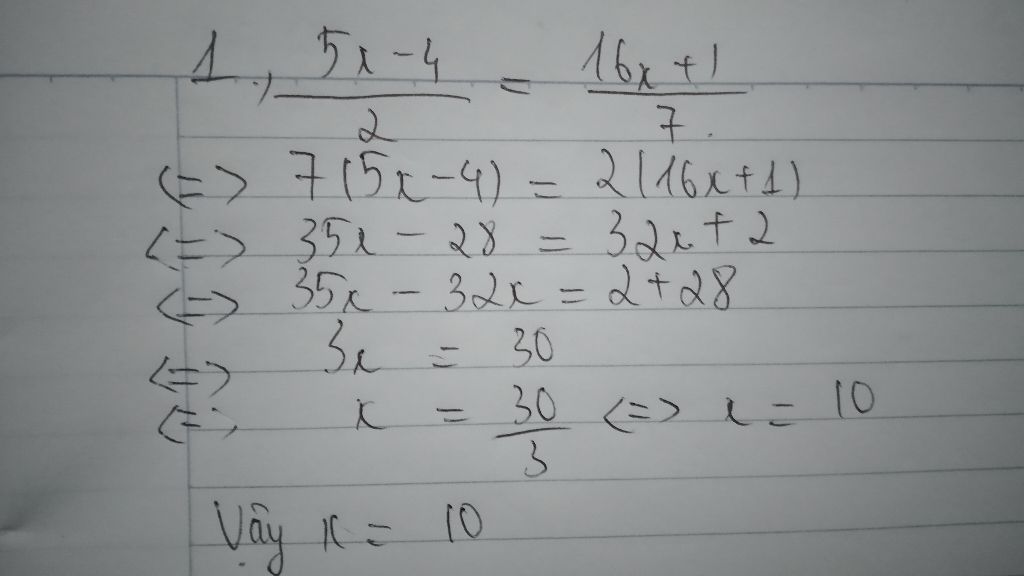 1., \frac{5x-4}{2} = \frac{16x+1}{7}.
<=> 7(5x-4) = 2(16x+1)
<=> 35x - 28 = 32x + 2
<=> 35x - 32x = 2+28
<=> 3x = 30
<=> x = \frac{30}{3} <=> x = 10
Vậy x = 10